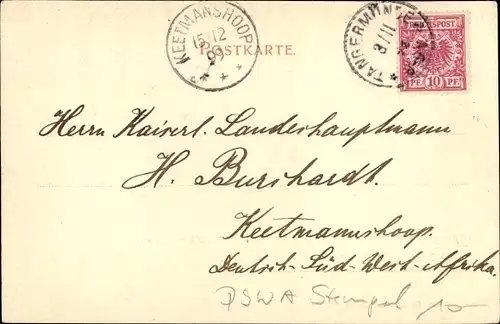 KEETMANSHOOP
15/12
99
POSTKARTE.
TANGERMÜNDE
8/11
REICHSPOST
PF. 10 PF.
Herrn Kaiserl. Landeshauptmann
H. Burchardt.
Keetmannshoop.
Deutsch-Süd-West-Afrika.
DSWA Stempel 10-